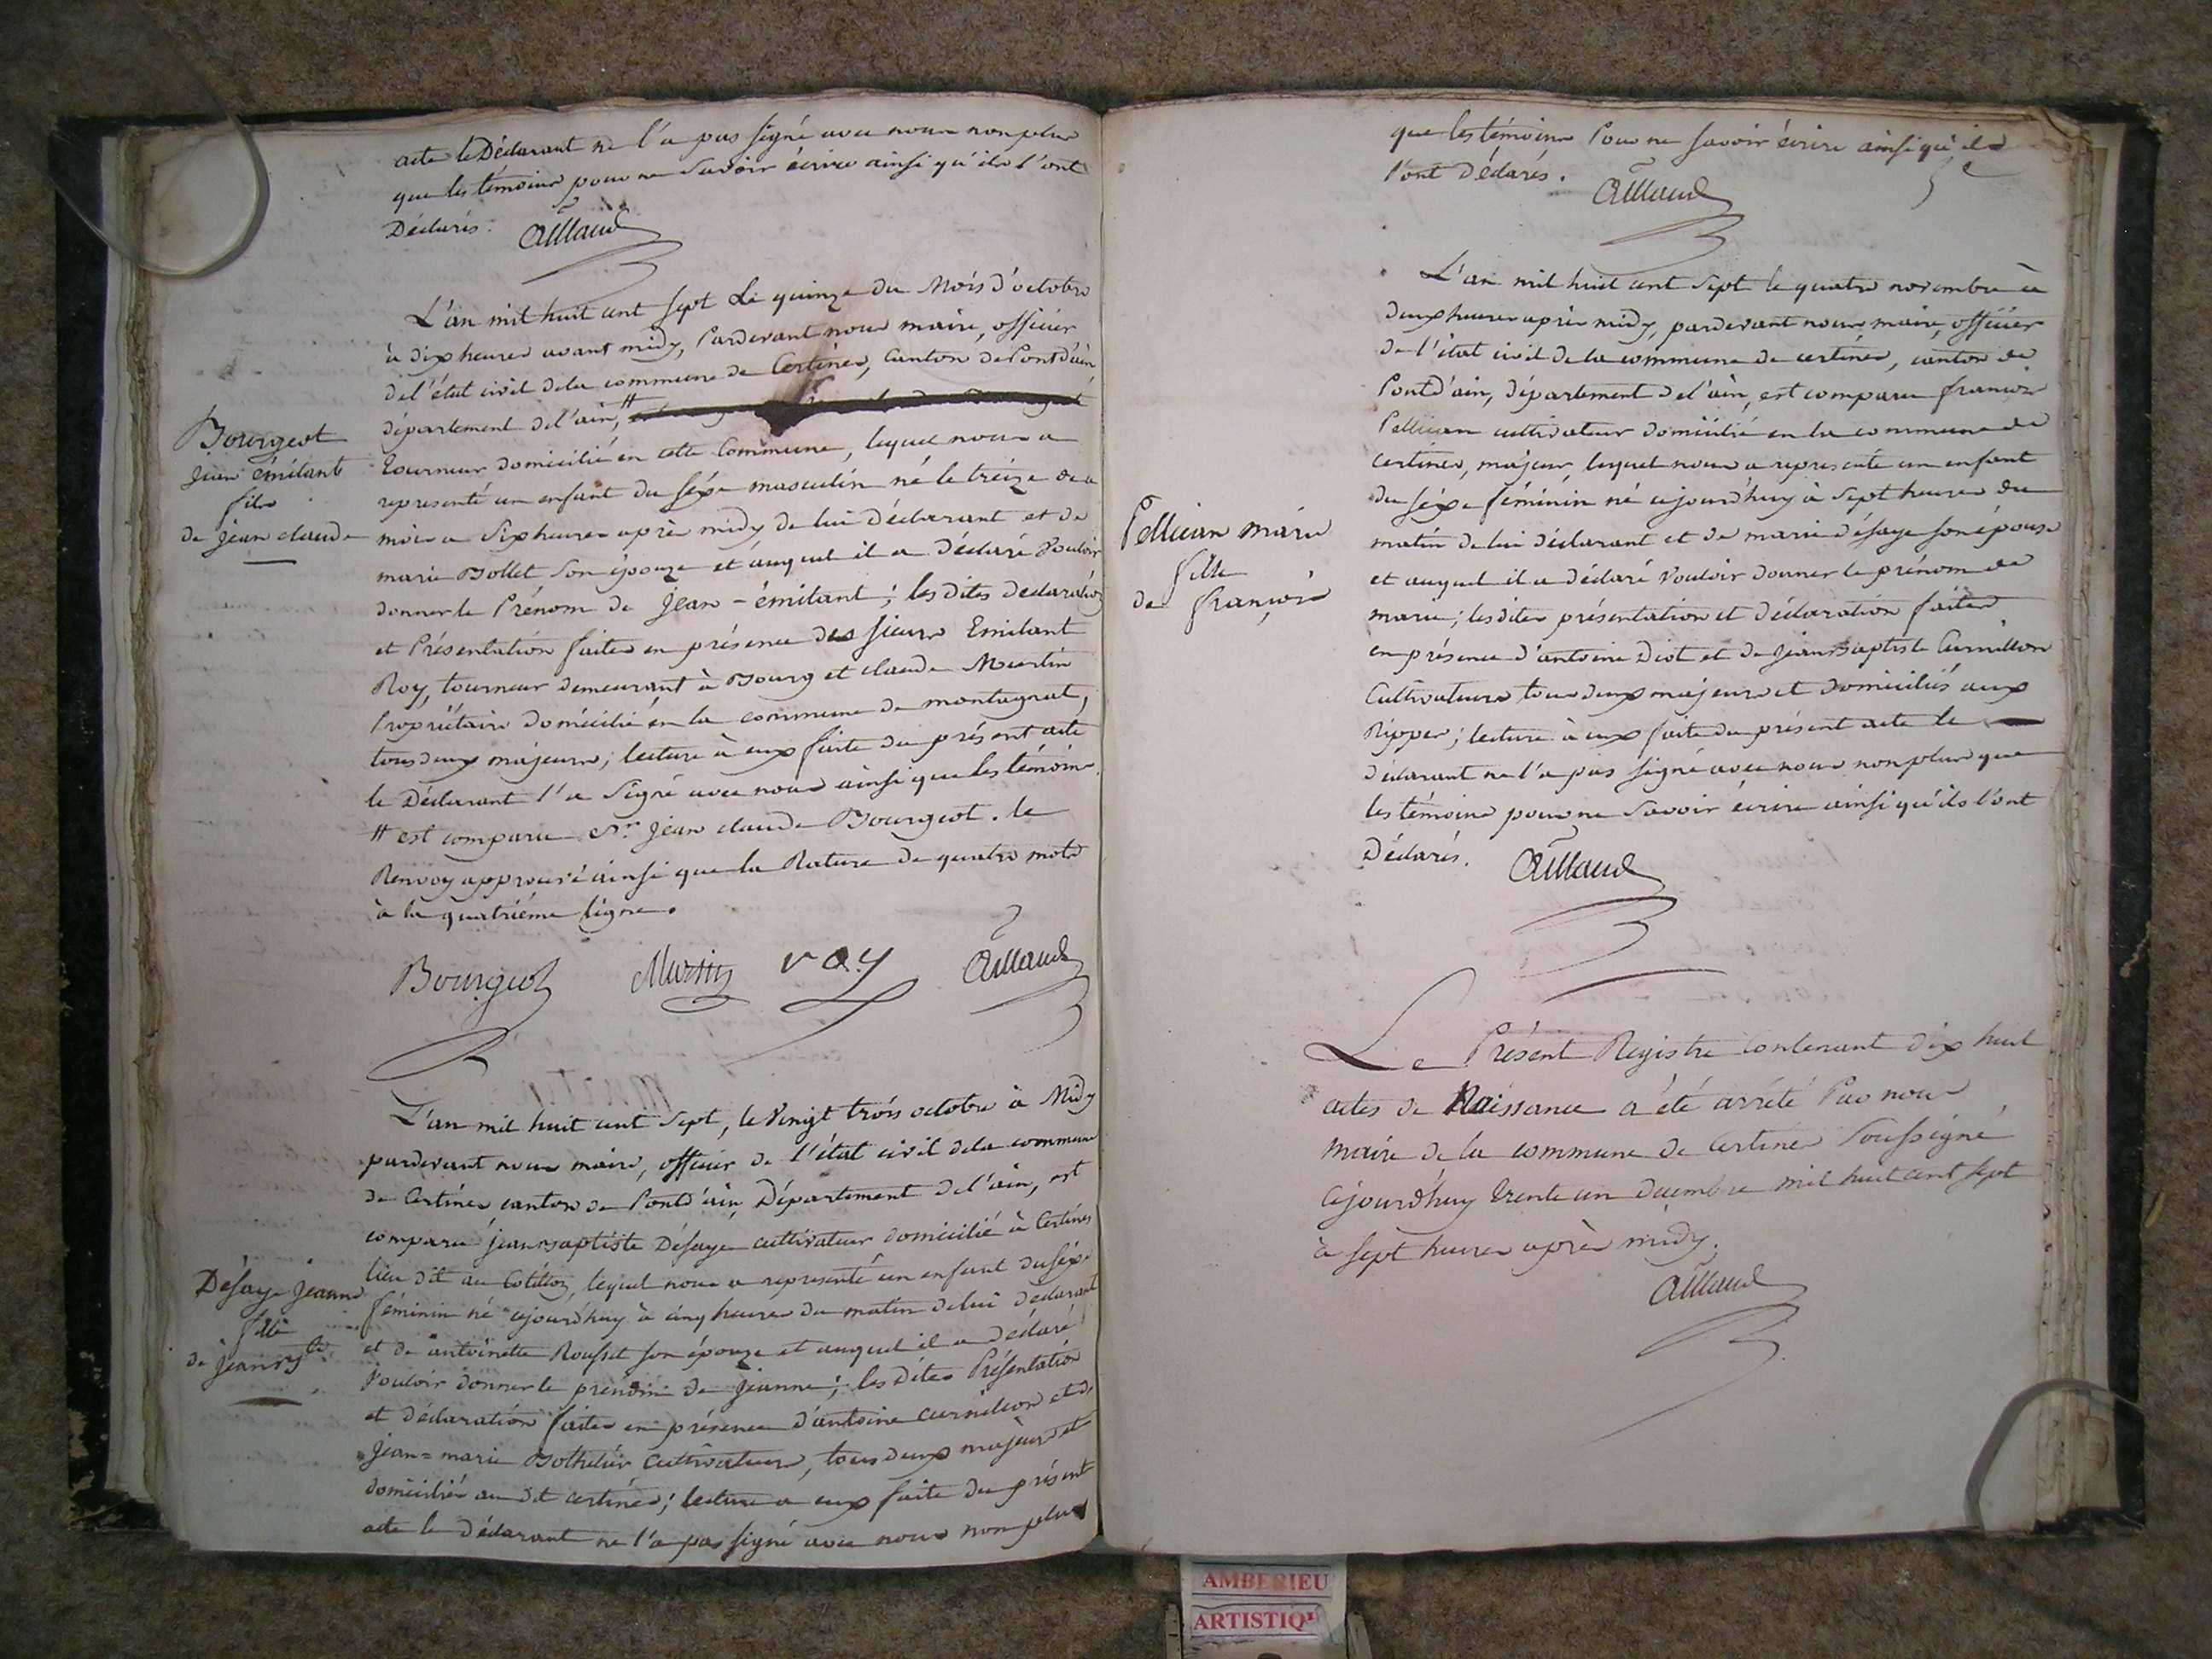 acte le Déclarant ne l'a pas signé avec nous non plus
que les témoins pour ne savoir écrire ainsi qu'ils l'ont
Déclarés. Aillaud
L'an mil huit cent sept Le quinze du Mois d'octobre
à dix heures avant midy, Pardevant nous maire, officier
de l'état civil dela commune de Certines, Canton de Pont d'ain,
département de l'ain, #
Bourgeot
Jean émilant
fils
de jean claude
tourneur domicilié en cette Commune, lequel nous a
representé un enfant du séxe masculin né le treize de ce
mois a six heures après midy de lui Déclarant et de
marie Bollet son épouze et auquel il a Déclaré Vouloir
donner le Prénom de Jean-émilant; les dites declaration
et Présentation faites en présence des sieurs Emilant
Roy, tourneur demeurant à Bourg et claude Martin
Propriétaire domicilié en la commune de montagnat,
tous deux majeurs; lecture à eux faite du présent acte
le Déclarant l'a signé avec nous ainsi que les témoins
# est comparu Sr. jean claude Bourgeot. le
Renvoy approuvé ainsi que la Rature de quatre mots
à la quatriéme ligne.
Bourgeot Martin roy Aillaud
L'an mil huit cent sept, le Vingt trois octobre à Midy
pardevant nous maire, officier de l'état civil dela commune
de Certines canton de Pont d'ain Département de l'ain, est
comparu jean baptiste Défaye cultivateur domicilié à Certines
Défaye jeanne
fille
de jean bte
lieu dit au, lequel nous a representé un enfant du séxe
féminin né cejourd'huy à cinq heures du matin de lui déclarant
et de antoinette Rousset son épouze et auquel il a déclaré
Vouloir donner le prénom de Jeanne; les Dites Présentation
et déclaration faites en présence d'antoine curnillon et de
Jean=marie Bothelier Cultivateurs, tous deux majeurs et
domiciliés au dit certines; lecture a eux faite du présent
acte le déclarant ne l'a pas signé avec nous non plus
que les témoins Pour ne savoir écrire ainsi qu'ils
l'ont Déclarés. Aillaud
L'an mil huit cent sept le quatre novembre à
deux heures après midy, pardevant nous maire, officier
de l'état civil de la commune de certines, canton de
Pont d'ain, département de l'ain, est comparu françois
Pellican cultivateur domicilié en la commune de
certines, majeur, lequel nous a representé un enfant
Pellican marie
fille
de françois
du séxe féminin né cejourd'huy à sept heures du
matin de lui déclarant et de marie défaye son épouse
et auquel il a déclaré Vouloir donner le prénom de
marie; les dites présentation et déclaration faites
en présence d'antoine Diot et de Jean Baptiste Curnillon
Cultivateurs tous deux majeurs et domiciliés aux
Rippes; lecture à eux faite du présent acte le
déclarant ne l'a pas signé avec nous non plus que
les témoins pour ne savoir écrire ainsi qu'ils l'ont
Déclarés. Aillaud
Le Présent Registre contenant dix huit
actes de Naissance a été arrété Par nous
maire de la commune de Certines soussigné
cejourd'huy trente un decembre mil huit cent sept
à sept heures après midy.
Aillaud
AMBERIEU
ARTISTIQ